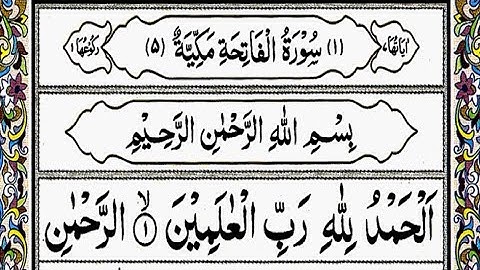 اٰیَاتُهَا ٧ (١) سُوْرَةُ الْفَاتِحَةِ مَكِّيَّةٌ (٥) رُكُوْعُهَا ١
بِسْمِ اللّٰهِ الرَّحْمٰنِ الرَّحِيْمِ
اَلْحَمْدُ لِلّٰهِ رَبِّ الْعٰلَمِيْنَ ۙ ١ الرَّحْمٰنِ